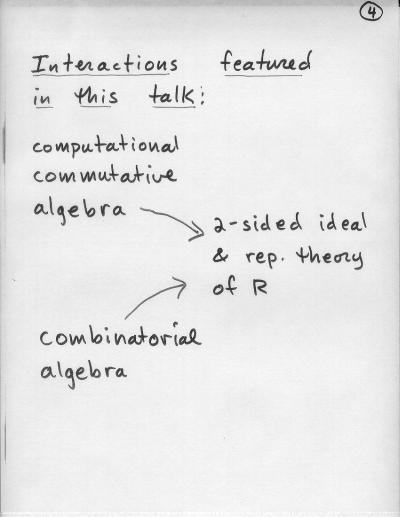 4
Interactions featured
in this talk:
computational
commutative
algebra
2-sided ideal
& rep. theory
of R
combinatorial
algebra